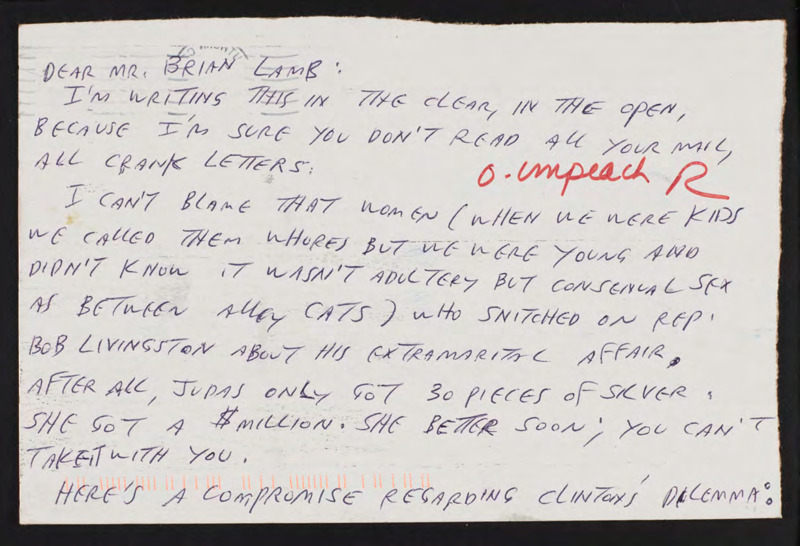 DEAR MR. BRIAN LAMB:
I'M WRITING THIS IN THE CLEAR, IN THE OPEN,
BECAUSE I'M SURE YOU DON'T READ ALL YOUR MAIL,
ALL CRANK LETTERS.
O. Impeach R
I CAN'T BLAME THAT WOMEN (WHEN WE WERE KIDS
WE CALLED THEM WHORES BUT WE WERE YOUNG AND
DIDN'T KNOW IT WASN'T ADULTERY BUT CONSENUAL SEX
AS BETWEEN ALLEY CATS) WHO SNITCHED ON REP.
BOB LIVINGSTON ABOUT HIS EXTRAMARITAL AFFAIR.
AFTER ALL, JUDAS ONLY GOT 30 PIECES OF SILVER.
SHE GOT A $MILLION. SHE BETTER SOON; YOU CAN'T
TAKE IT WITH YOU.
HERE'S A COMPROMISE REGARDING CLINTON'S DILEMMA: